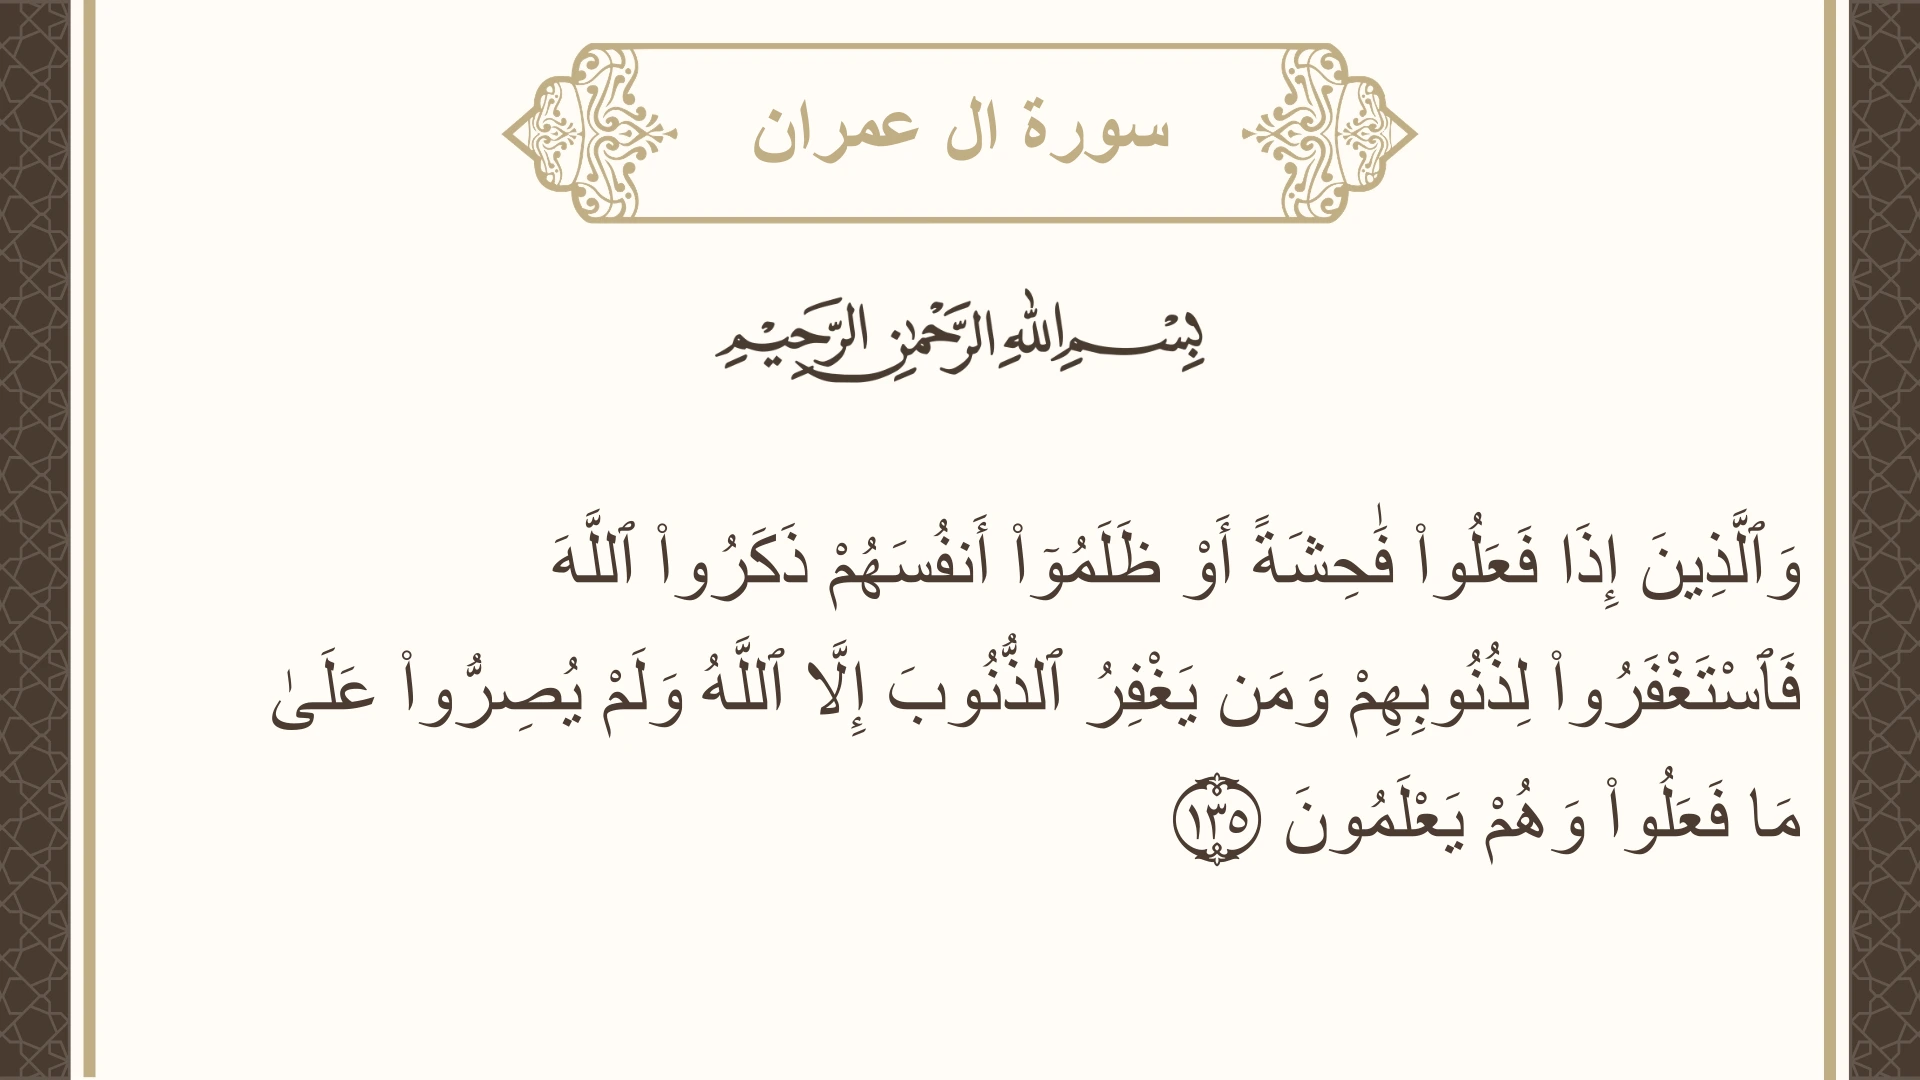 سورة ال عمران
بِسْمِ اللهِ الرَّحْمٰنِ الرَّحِيْمِ
وَٱلَّذِينَ إِذَا فَعَلُوا۟ فَٰحِشَةً أَوْ ظَلَمُوٓا۟ أَنفُسَهُمْ ذَكَرُوا۟ ٱللَّهَ
فَٱسْتَغْفَرُوا۟ لِذُنُوبِهِمْ وَمَن يَغْفِرُ ٱلذُّنُوبَ إِلَّا ٱللَّهُ وَلَمْ يُصِرُّوا۟ عَلَىٰ
مَا فَعَلُوا۟ وَهُمْ يَعْلَمُونَ ١٣٥